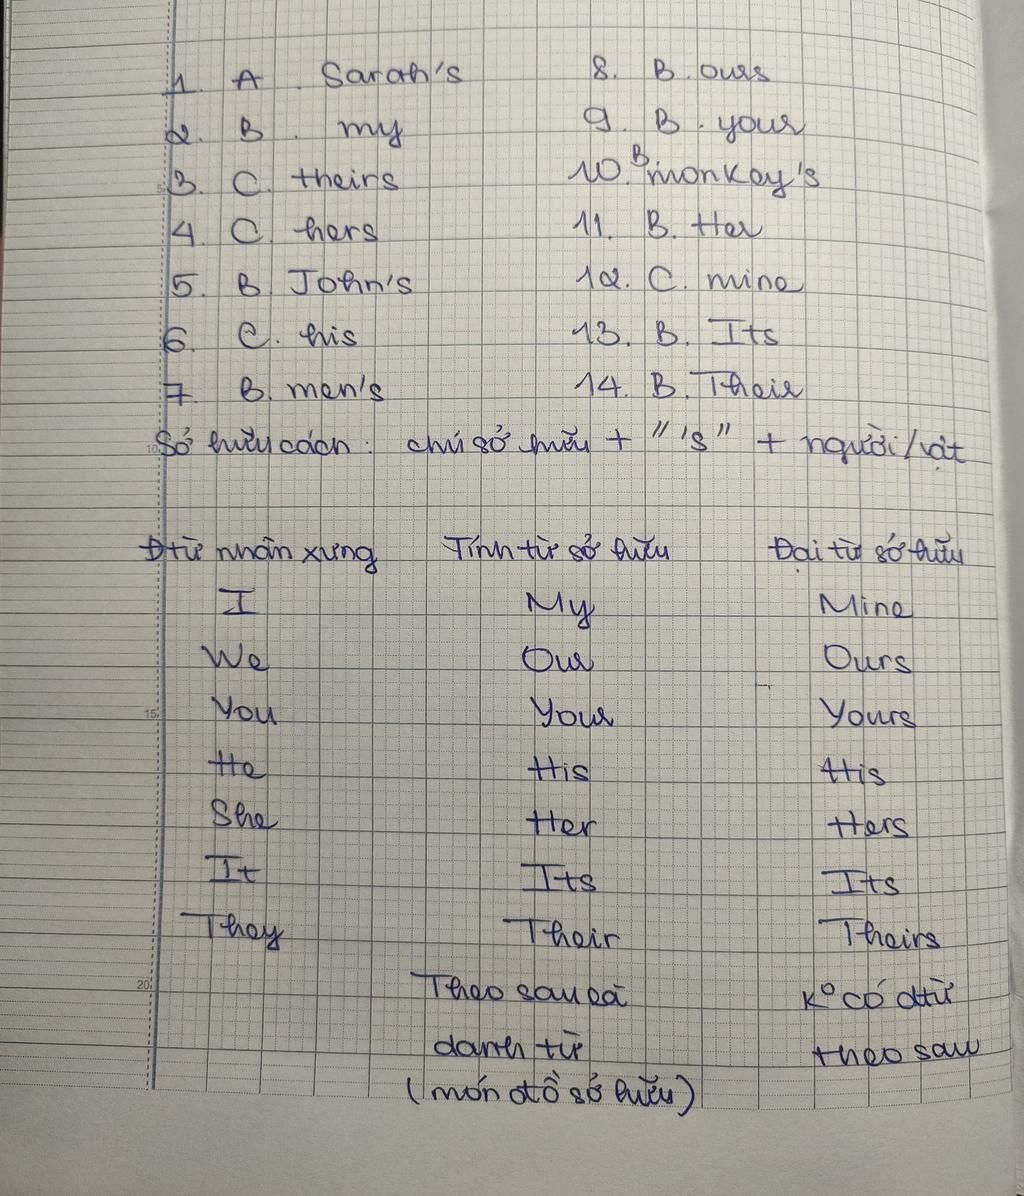 1. A. Sarah's 8. B. ours
2. B. my 9. B. your
3. C. theirs 10. B monkey's
4. C. hers 11. B. Her
5. B. John's 12. C. mine
6. C. his 13. B. Its
7. B. men's 14. B. Their
Sở hữu cách: chủ sở hữu + "'s" + người/vật
Đtừ nhân xưng Tính từ sở hữu Đại từ sở hữu
I My Mine
We Our Ours
You Your Yours
He His His
She Her Hers
It Its Its
They Their Theirs
Theo sau là K° có dtừ
danh từ theo sau
(món đồ sở hữu)